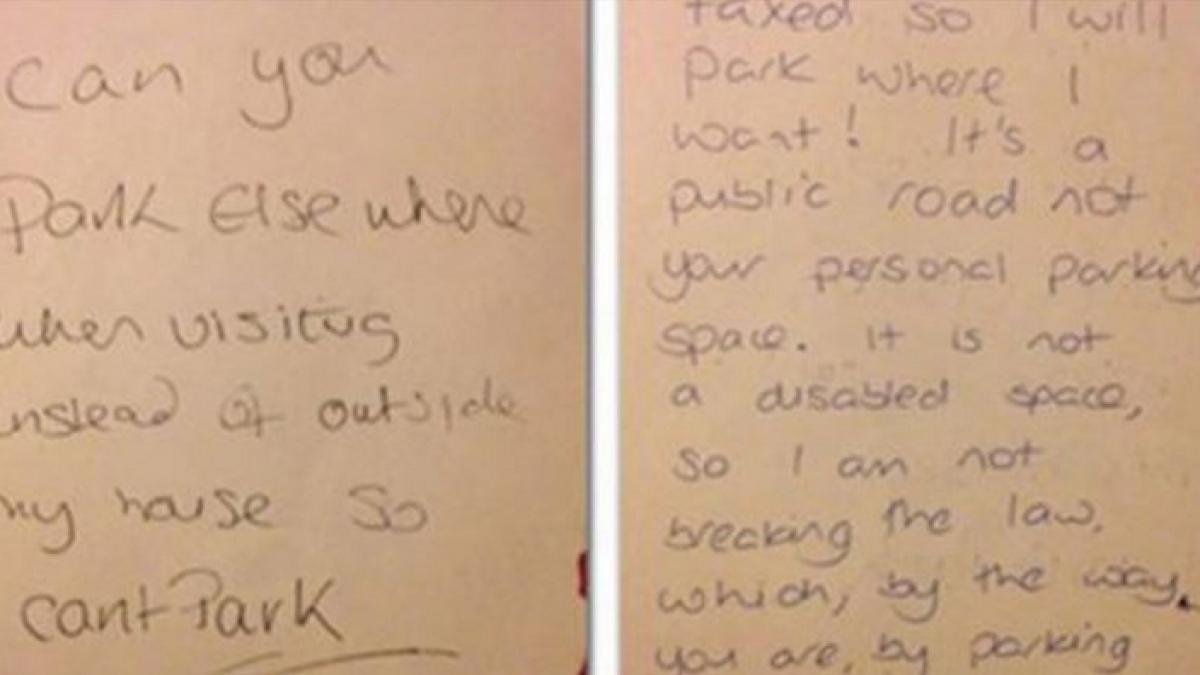 can you
Park Elsewhere
when visitng
instead of outside
my house so
cant Park
taxed so I will
park where I
want! It's a
public road not
your personal parking
space. It is not
a disabled space,
so I am not
breaking the law,
which, by the way,
you are, by parking